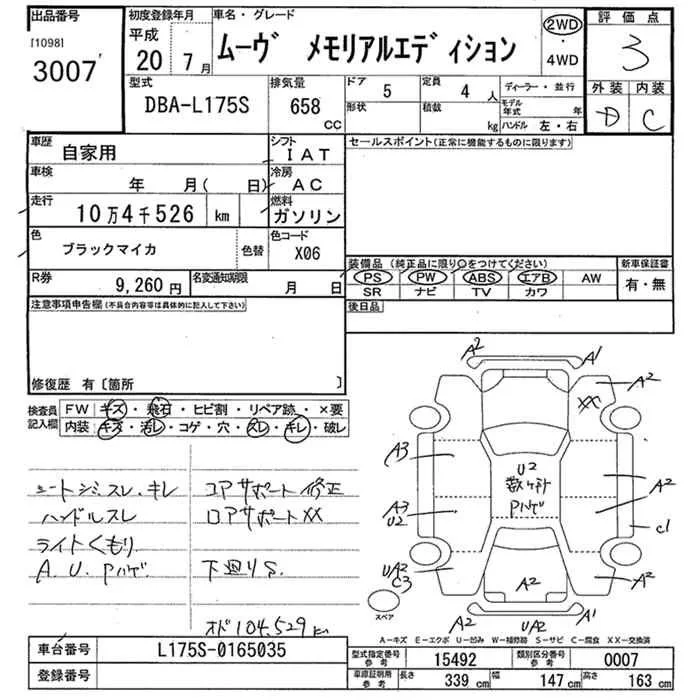 出品番号 初度登録年月 車名・グレード 2WD 評価点
[1098] 平成 ムーヴ メモリアルエディション ・ 3
3007 20 7月 4WD
型式 排気量 ドア 5 定員 4人 ディーラー・並行 外装 内装
DBA-L175S 658 cc 形状 積載 kg モデル年式 年 D C
ハンドル 左・右
車歴 自家用 シフト IAT セールスポイント(正常に機能するものに限ります)
車検 年 月( 日) 冷房 AC
走行 10万4千526 km 燃料 ガソリン
色 ブラックマイカ 色替 色コード X06
装備品 (純正品に限り○をつけてください) 新車保証書
R券 9,260円 名変通知期限 月 日 PS PW ABS エアB AW 有・無
SR ナビ TV カワ
注意事項申告欄(不具合内容等は具体的に記入して下さい) 後日品
修復歴 有〔箇所 〕
検査員 FW キズ・飛石・ヒビ割・リペア跡・×要
記入欄 内装 キズ・汚レ・コゲ・穴・スレ・キレ・破レ
シートシミ、スレ、キレ コアサポート修正
ハンドルスレ ロアサポートXX
ライトくもり
A.U.Pハゲ 下廻りS.
オド104,529km
A2 A1
A2
XX
A3
U2
A2
Pハゲ
A3
U2
C1
UA2
C3
A2
A2
スペア
A2 UA2 A1
A-キズ E-エクボ U-凹み W-補修跡 S-サビ C-腐食 XX-交換済
車台番号 L175S-0165035 型式指定番号 参考 15492 類別区分番号 参考 0007
登録番号 車庫証明用 参考 長さ 339 cm 幅 147 cm 高さ 163 cm